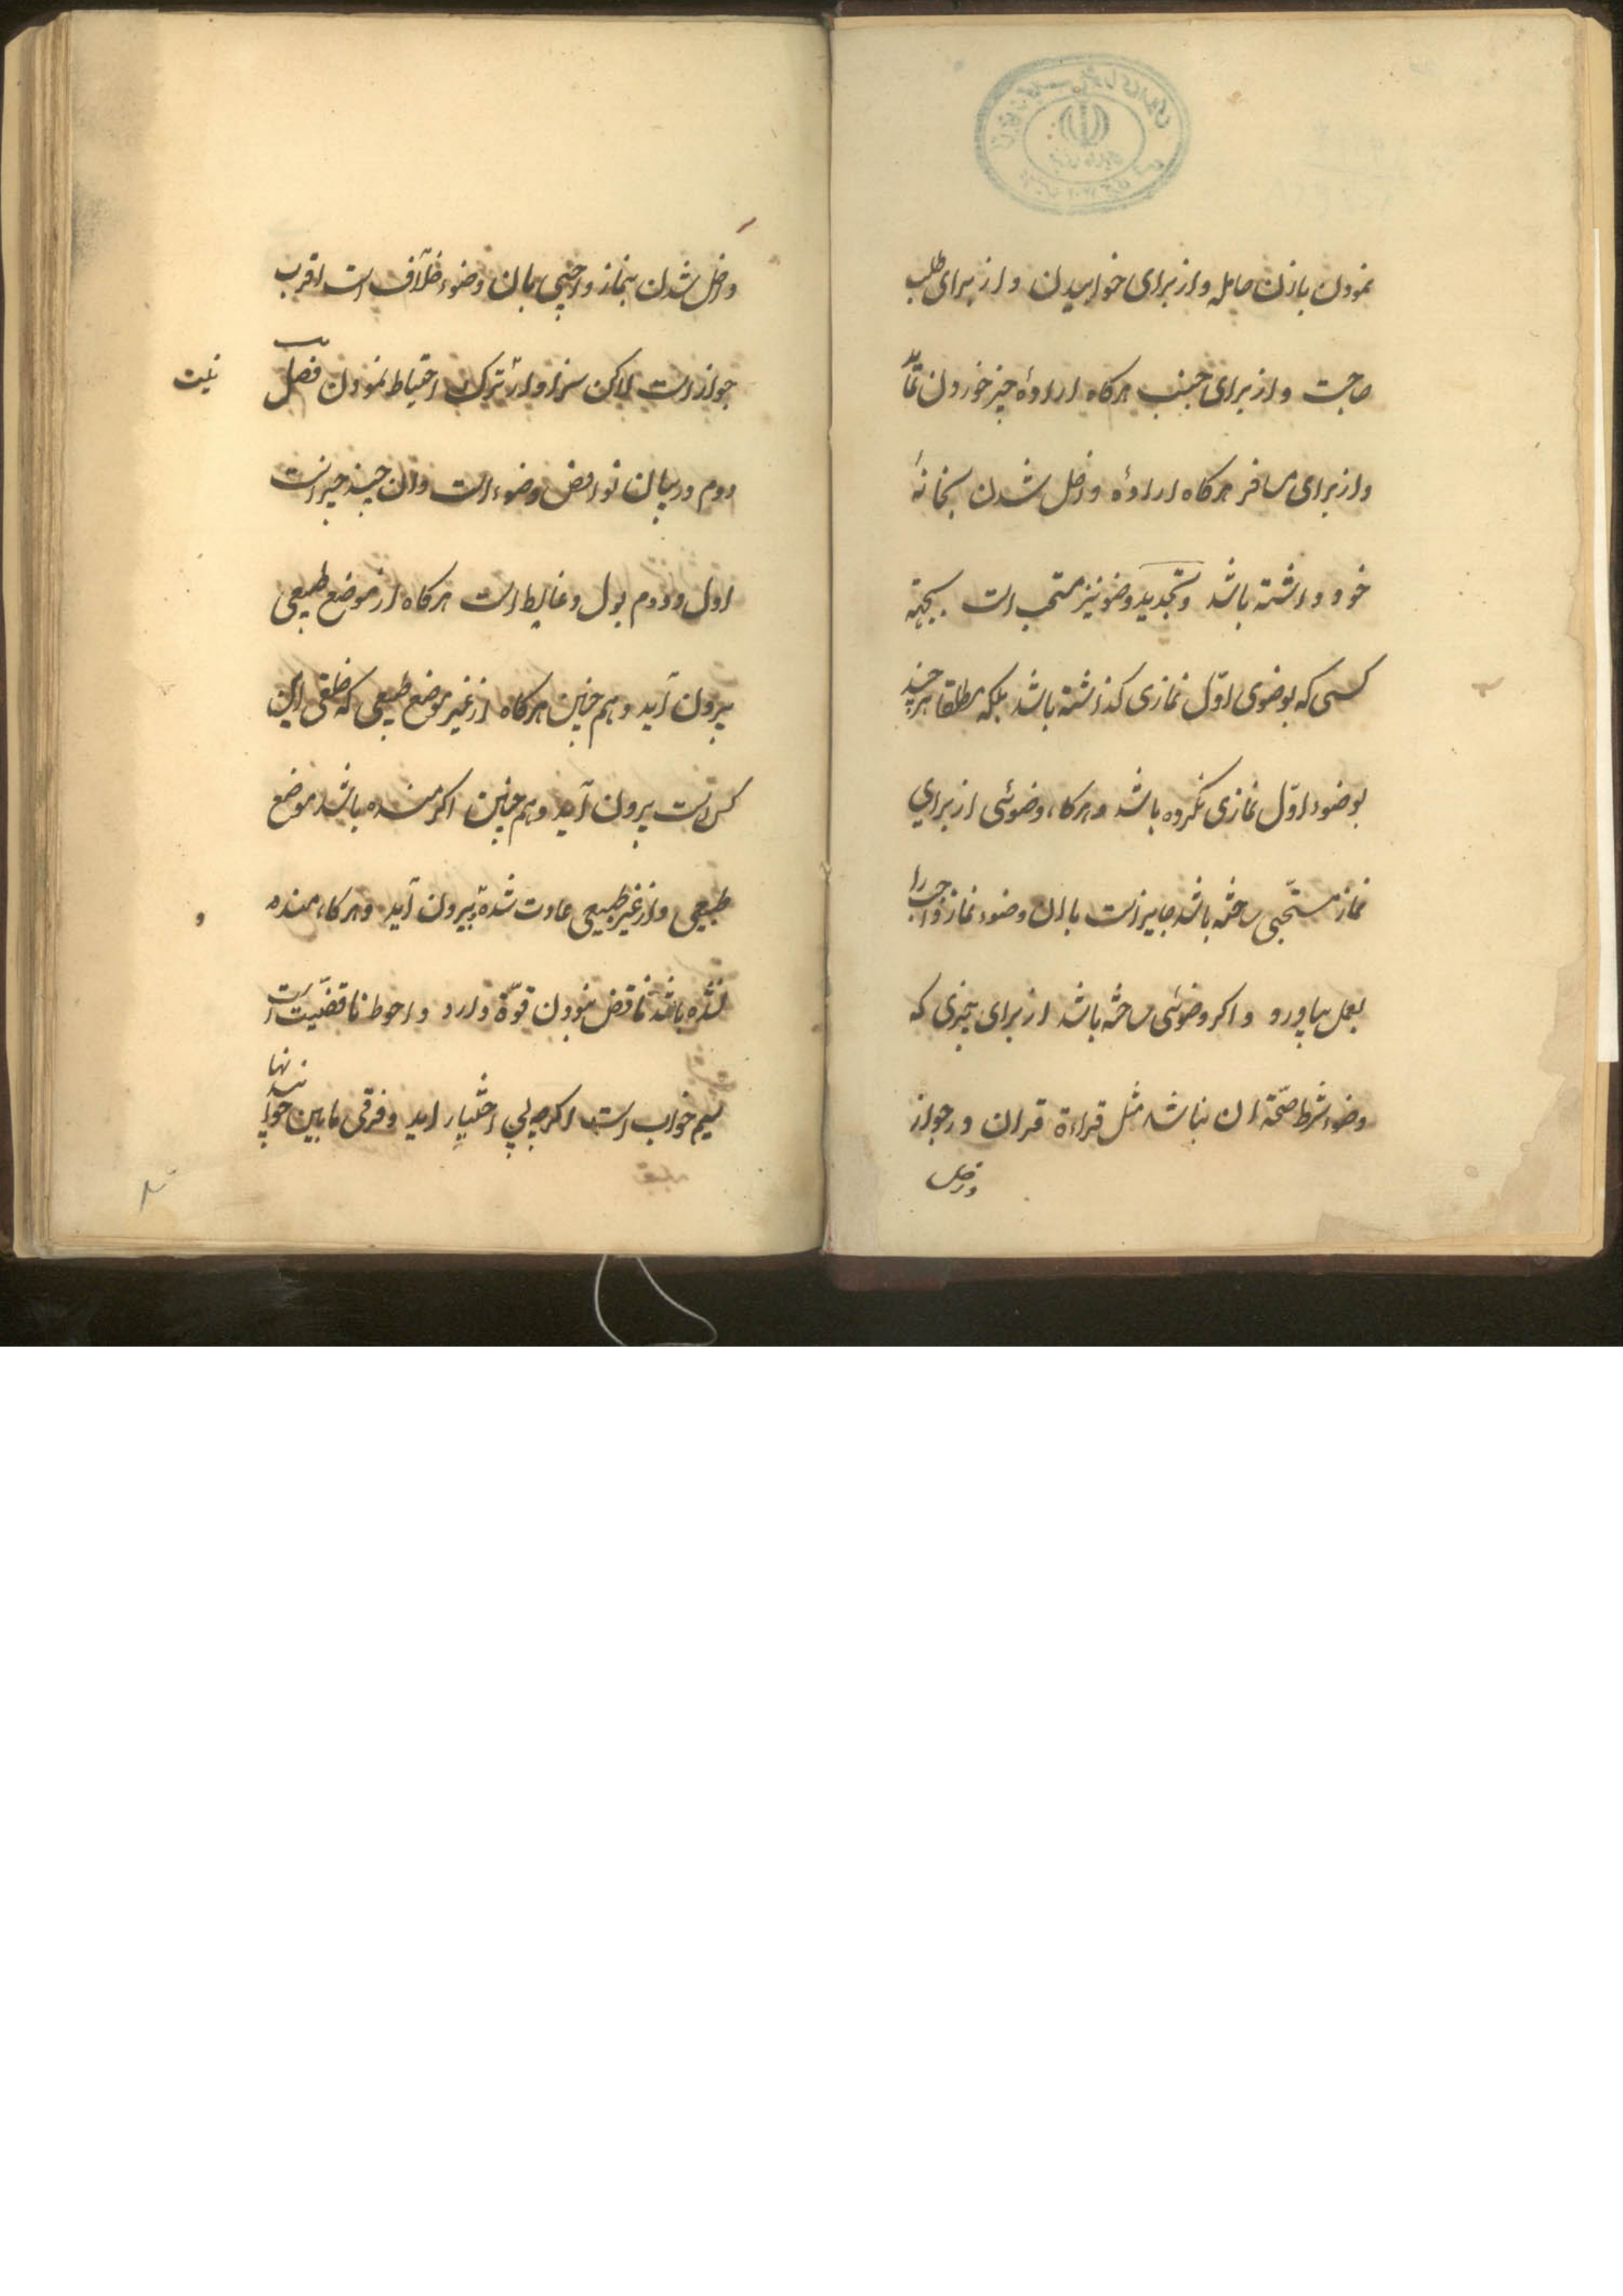 نمودن بازن حامله و از برای خوابیدن و از برای طلب
حاجت و از برای جنب هرکاه ارادهٔ چیز خوردن نماید
و از برای مسافر هرکاه ارادهٔ داخل شدن بخانهٔ
خود داشته باشد و تجدید وضو نیز مستحب است بجهة
کسی که بوضوی اوّل نمازی کذاشته باشد بلکه مطلقا هر چند
بوضوء اوّل نمازی نکرده باشد و هرکاه وضوئی از برای
نماز مستحبّی ساخته باشد جایز است با ان وضوء نماز واجب را
بعمل بیاورد و اکر وضوئی ساخته باشد از برای چیزی که
وضوء شرط صحّة ان نباشد مثل قراءة قران در جواز
داخل
داخل شدن بنماز واجبی بان وضوء خلاف است اقرب
جواز است لاکن سزاوار ترک احتیاط نمودن نیست فصل
دوم در بیان نواقض وضوء است و ان چند چیز است
اول و دوم بول و غایط است هرکاه از موضع طبیعی
بیرون آید و هم چنین هرکاه از غیر موضع طبیعی که خلقی این
کس است بیرون آید و هم چنین اکر منسده باشد موضع
طبیعی و از غیر طبیعی عادت شده بیرون آید و هرکاه منسده
نشده باشد ناقض نبودن قوّة دارد و احوط ناقضیّت است
سیم خواب است اکرچه بی اختیار اید و فرقی ما بین خواب